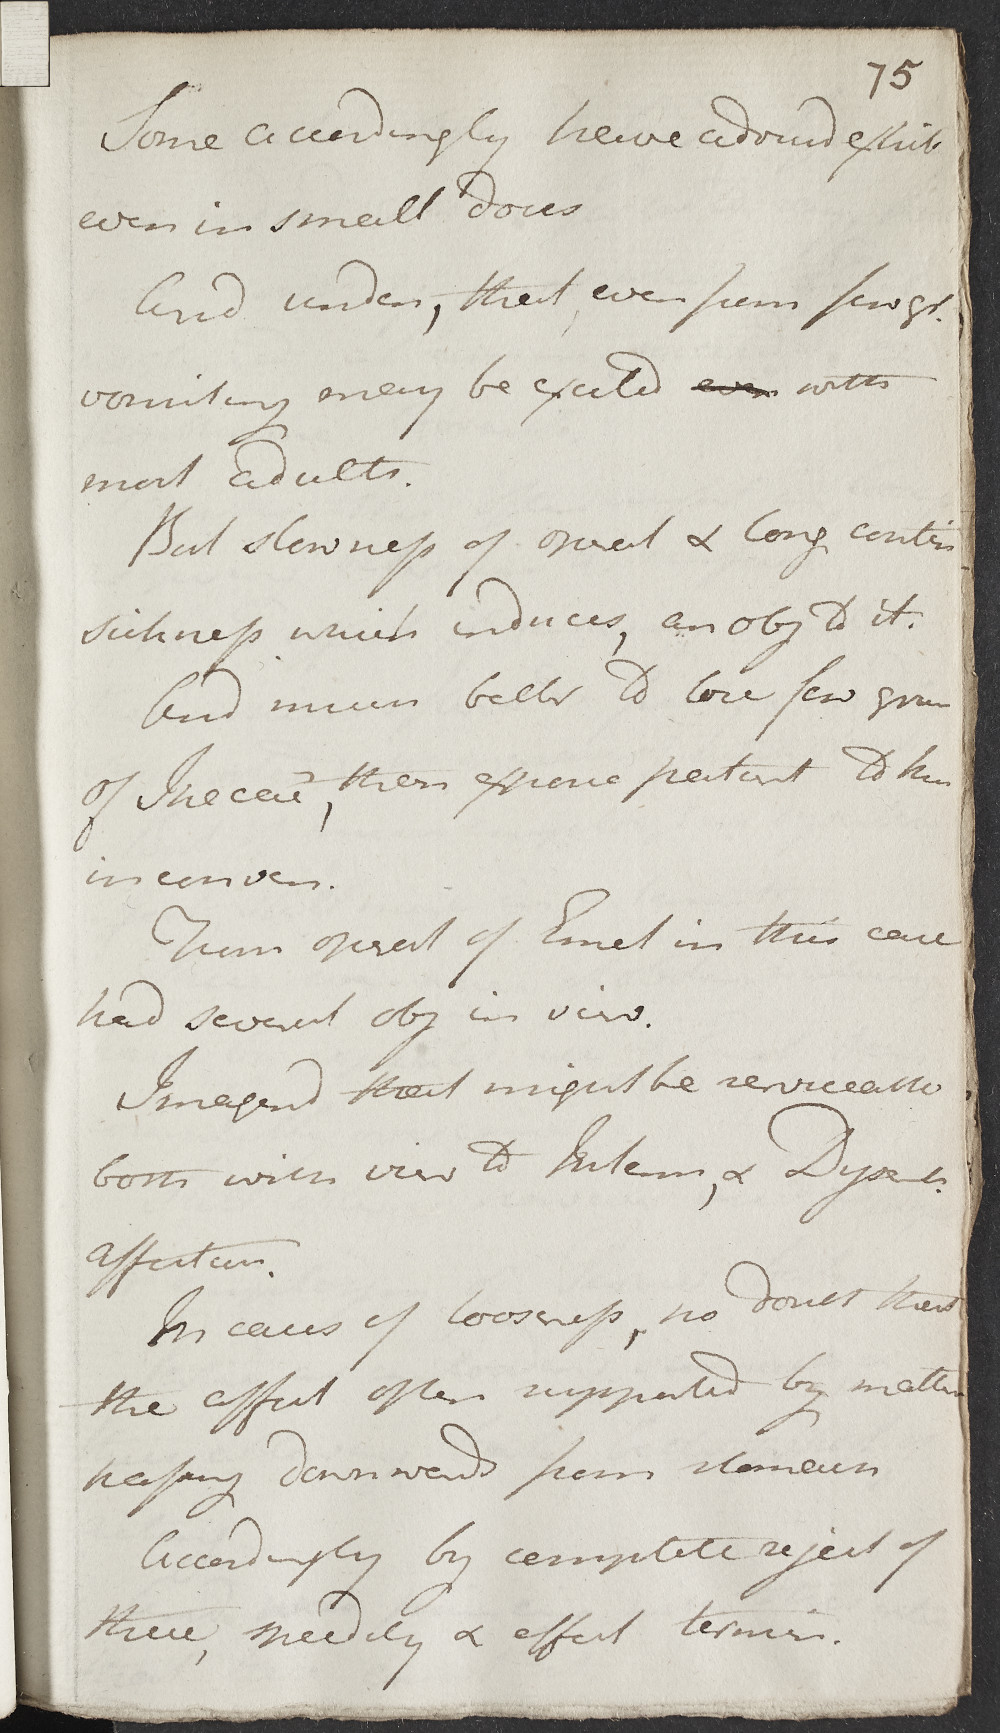 75
Some accordingly have advised exhib
even in small doses
And under, that, even from few gr.
vomiting may be excited even with
most adults.
But slowness of operat & long contin
sickness which induces, an obj to it.
And much better to lose few grain
of Ipecac, then expose patient to this
inconven.
From operat of Emet in this case
had several obj in view.
Imagend that might be serviceable
both with view to Intern, & Dysent.
affection.
In cases of looseness, no doubt that
the affect often supported by matter
passing downwards from stomach
Accordingly by complete reject of
these, speedily & effect termin.